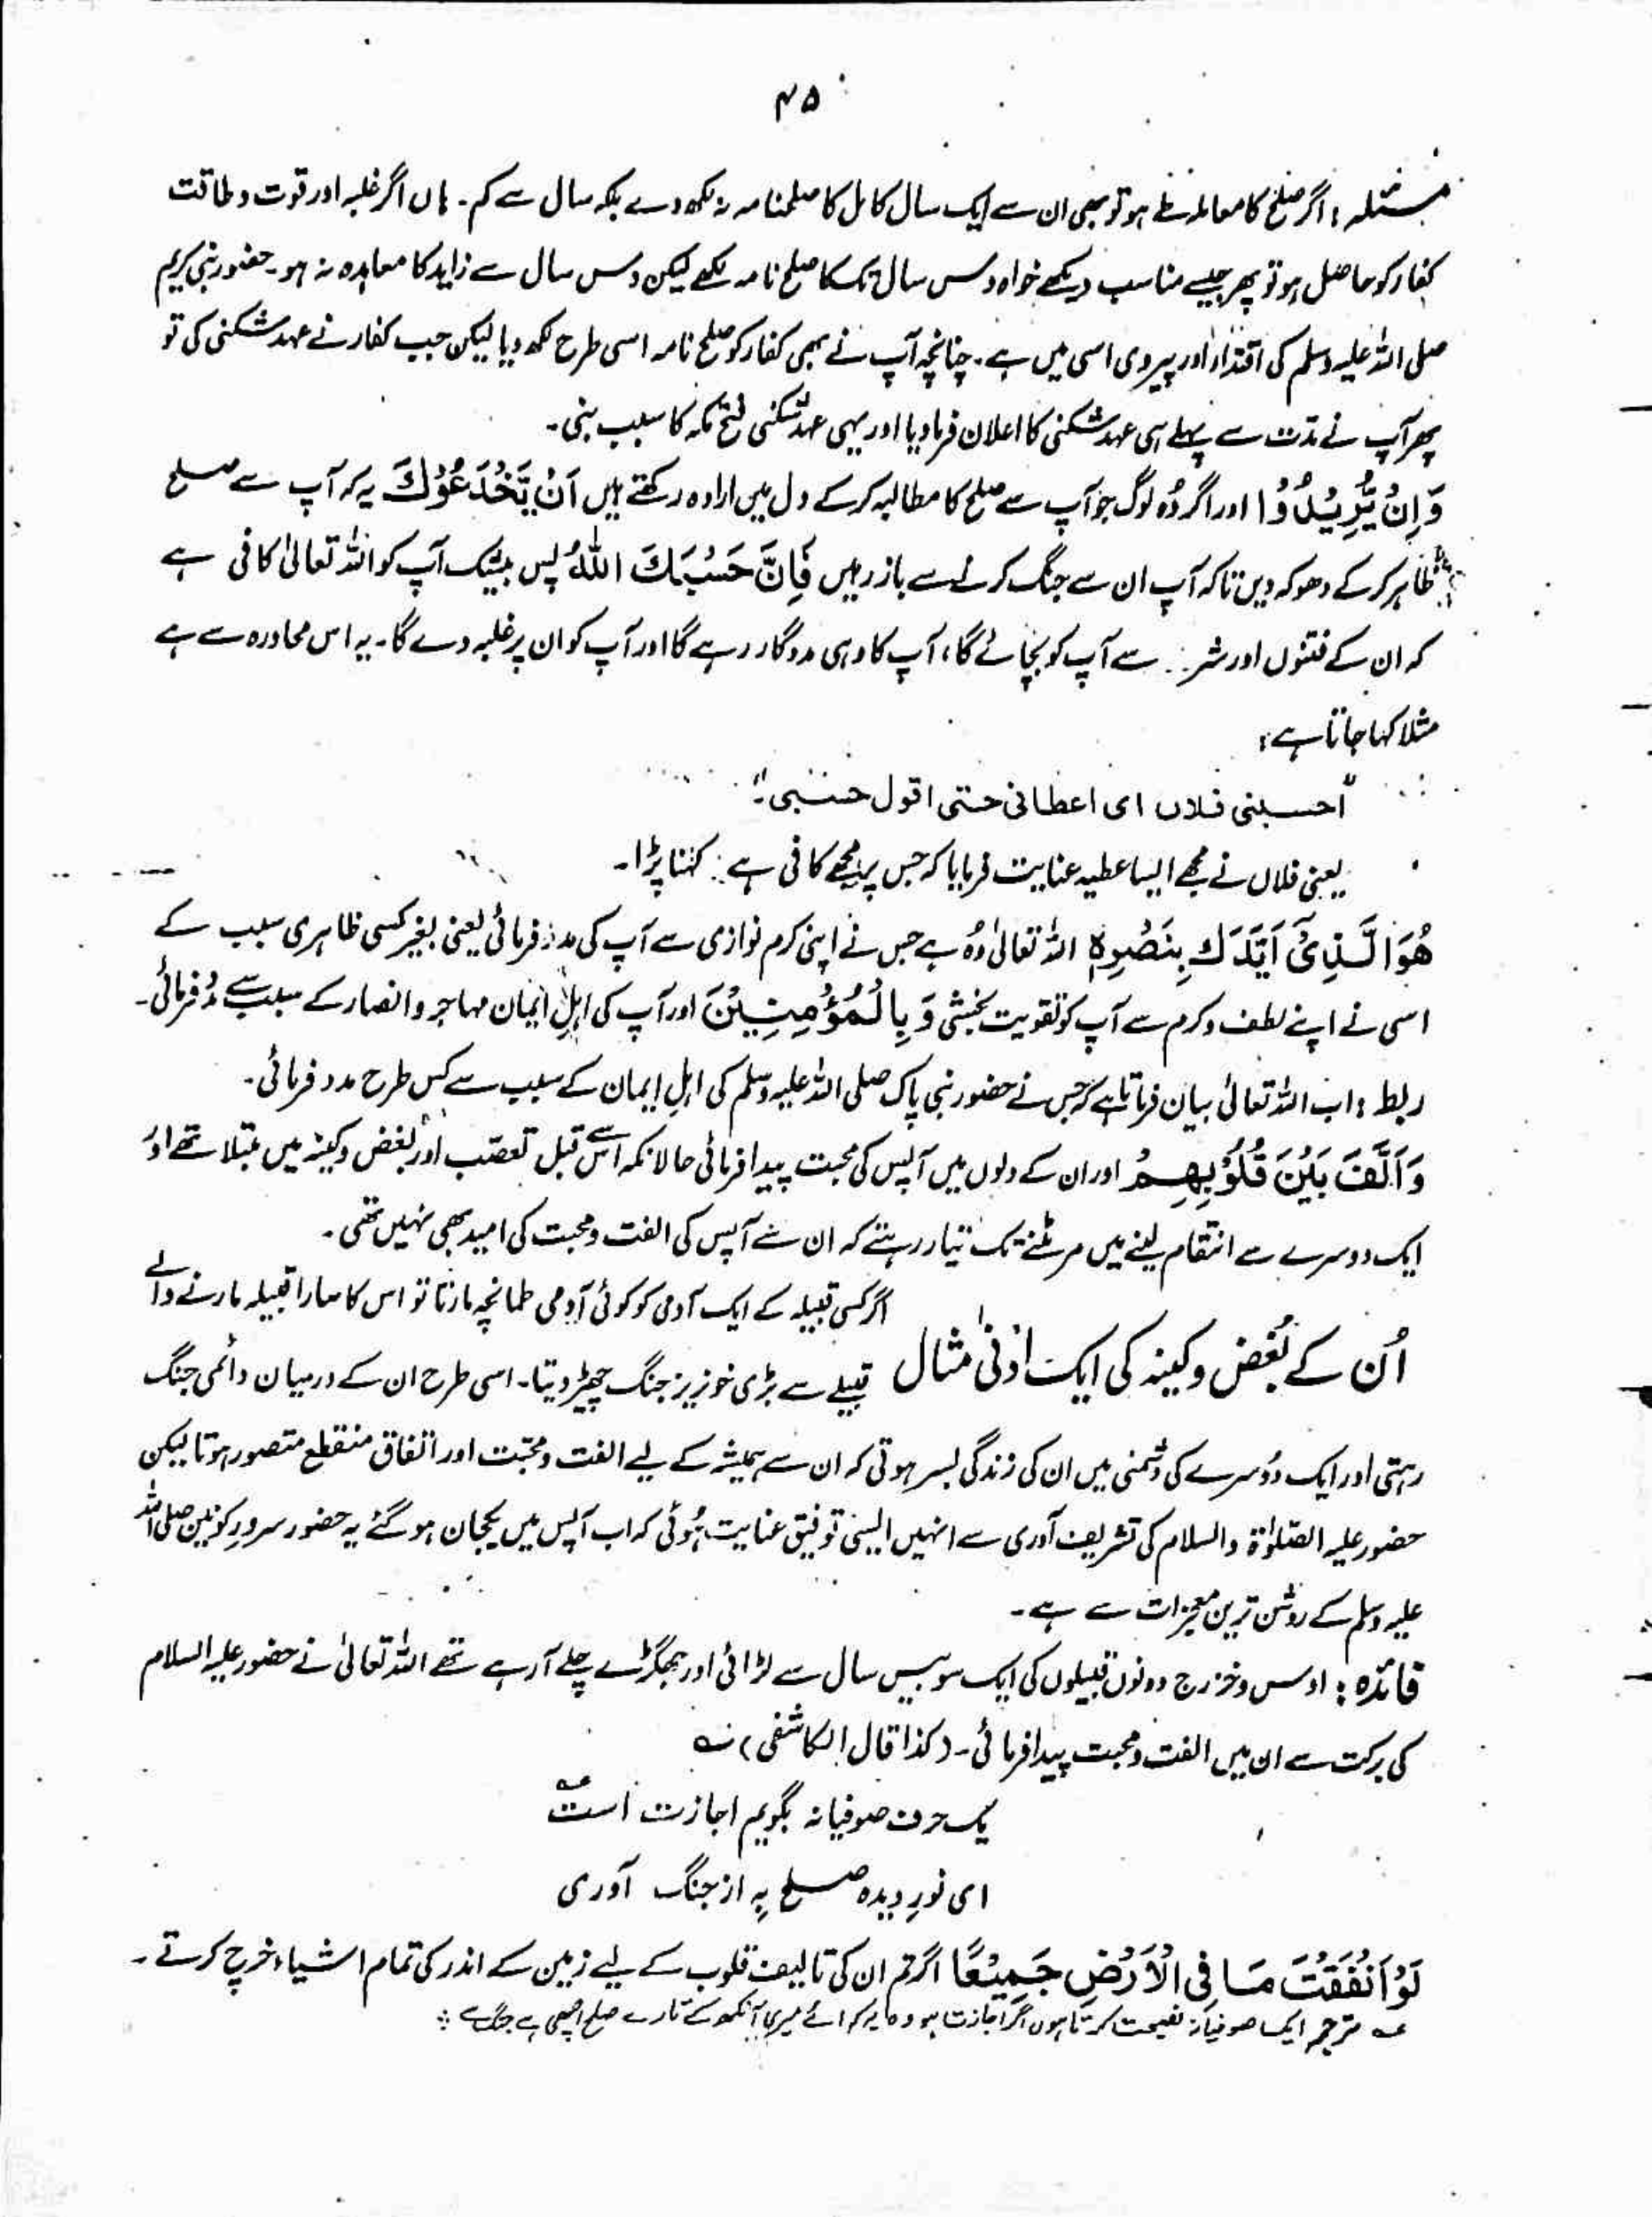 ۴۵
مسئلہ : اگر صلح کا معاملہ طے ہو تو بھی ان سے ایک سال کامل کا صلحنامہ نہ لکھ دے بلکہ سال سے کم۔ ہاں اگر غلبہ اور قوت و طاقت
کفار کو حاصل ہو تو پھر جیسے مناسب دیکھے خواہ دس سال تک کا صلح نامہ لکھے لیکن دس سال سے زاید کا معاہدہ نہ ہو۔ حضور نبی کریم
صلی اللہ علیہ وسلم کی اقتداء اور پیروی اسی میں ہے۔ چنانچہ آپ نے بھی کفار کو صلح نامہ اسی طرح لکھ دیا لیکن جب کفار نے عہد شکنی کی تو
پھر آپ نے مدّت سے پہلے ہی عہد شکنی کا اعلان فرما دیا اور یہی عہد شکنی فتح مکہ کا سبب بنی۔
وَاِنْ يُّرِيْدُوْا اور اگر وُہ لوگ جو آپ سے صلح کا مطالبہ کرکے دل میں ارادہ رکھتے ہیں اَنْ يَّخْدَعُوْكَ یہ کہ آپ سے صلح
ظاہر کرکے دھوکہ دیں تاکہ آپ ان سے جنگ کرنے سے باز رہیں فَاِنَّ حَسْبَكَ اللّٰهُ پس بیشک آپ کو اللہ تعالیٰ کافی ہے
کہ ان کے فتنوں اور شر سے آپ کو بچائے گا، آپ کا وہی مددگار رہے گا اور آپ کو ان پر غلبہ دے گا۔ یہ اس محاورہ سے ہے
مثلا کہا جاتا ہے :
"احسبنی فلاں ای اعطانی حتی اقول حسبی۔"
یعنی فلاں نے مجھے ایسا عطیہ عنایت فرمایا کہ جس پر مجھے کافی ہے کہنا پڑا۔
هُوَ الَّذِيْٓ اَيَّدَكَ بِنَصْرِهٖ اللہ تعالیٰ وُہ ہے جس نے اپنی کرم نوازی سے آپ کی مدد فرمائی یعنی بغیر کسی ظاہری سبب کے
اسی نے اپنے لطف و کرم سے آپ کو تقویت بخشی وَ بِالْمُؤْمِنِيْنَ اور آپ کی اہلِ ایمان مہاجر و انصار کے سبب سے مدد فرمائی۔
ربط : اب اللہ تعالیٰ بیان فرماتا ہے کہ جس نے حضور نبی پاک صلی اللہ علیہ وسلم کی اہلِ ایمان کے سبب سے کس طرح مدد فرمائی۔
وَاَلَّفَ بَيْنَ قُلُوْبِهِمْ اور ان کے دلوں میں آپس کی محبت پیدا فرمائی حالانکہ اس سے قبل تعصّب اور بُغض و کینہ میں مبتلا تھے اور
ایک دوسرے سے انتقام لینے میں مر مٹنے تک تیار رہتے کہ ان سے آپس کی الفت و محبت کی امید بھی نہیں تھی۔
اُن کے بُغض و کینہ کی ایک ادنیٰ مثال اگر کسی قبیلہ کے ایک آدمی کو کوئی آدمی طمانچہ مارتا تو اس کا سارا قبیلہ مارنے والے
قبیلے سے بڑی خونریز جنگ چھیڑ دیتا۔ اسی طرح ان کے درمیان دائمی جنگ
رہتی اور ایک دُوسرے کی دشمنی میں ان کی زندگی بسر ہوتی کہ ان سے ہمیشہ کے لیے الفت و محبّت اور اتفاق منقطع متصور ہوتا لیکن
حضور علیہ الصّلوٰۃ والسلام کی تشریف آوری سے انہیں ایسی توفیق عنایت ہُوئی کہ اب آپس میں یکجان ہو گئے یہ حضور سرورِ کونین صلی اللہ
علیہ وسلم کے روشن ترین معجزات سے ہے۔
فائدہ : اوس و خزرج دونوں قبیلوں کی ایک سو بیس سال سے لڑائی اور جھگڑے چلے آرہے تھے اللہ تعالیٰ نے حضور علیہ السلام
کی برکت سے ان میں الفت و محبت پیدا فرمائی۔ (کذا قال الکاشفی) ؎
یک حرف صوفیانہ بگویم اجازت است ؎
ای نورِ دیدہ صلح بہ از جنگ آوری
لَوْ اَنْفَقْتَ مَا فِي الْاَرْضِ جَمِيْعًا اگر تم ان کی تالیف قلوب کے لیے زمین کے اندر کی تمام اشیاء خرچ کرتے۔
؎ ترجمہ ایک صوفیانہ نصیحت کرتا ہوں اگر اجازت ہو وہ یہ کہ اے میری آنکھ کے تارے صلح اچھی ہے جنگ سے ؞